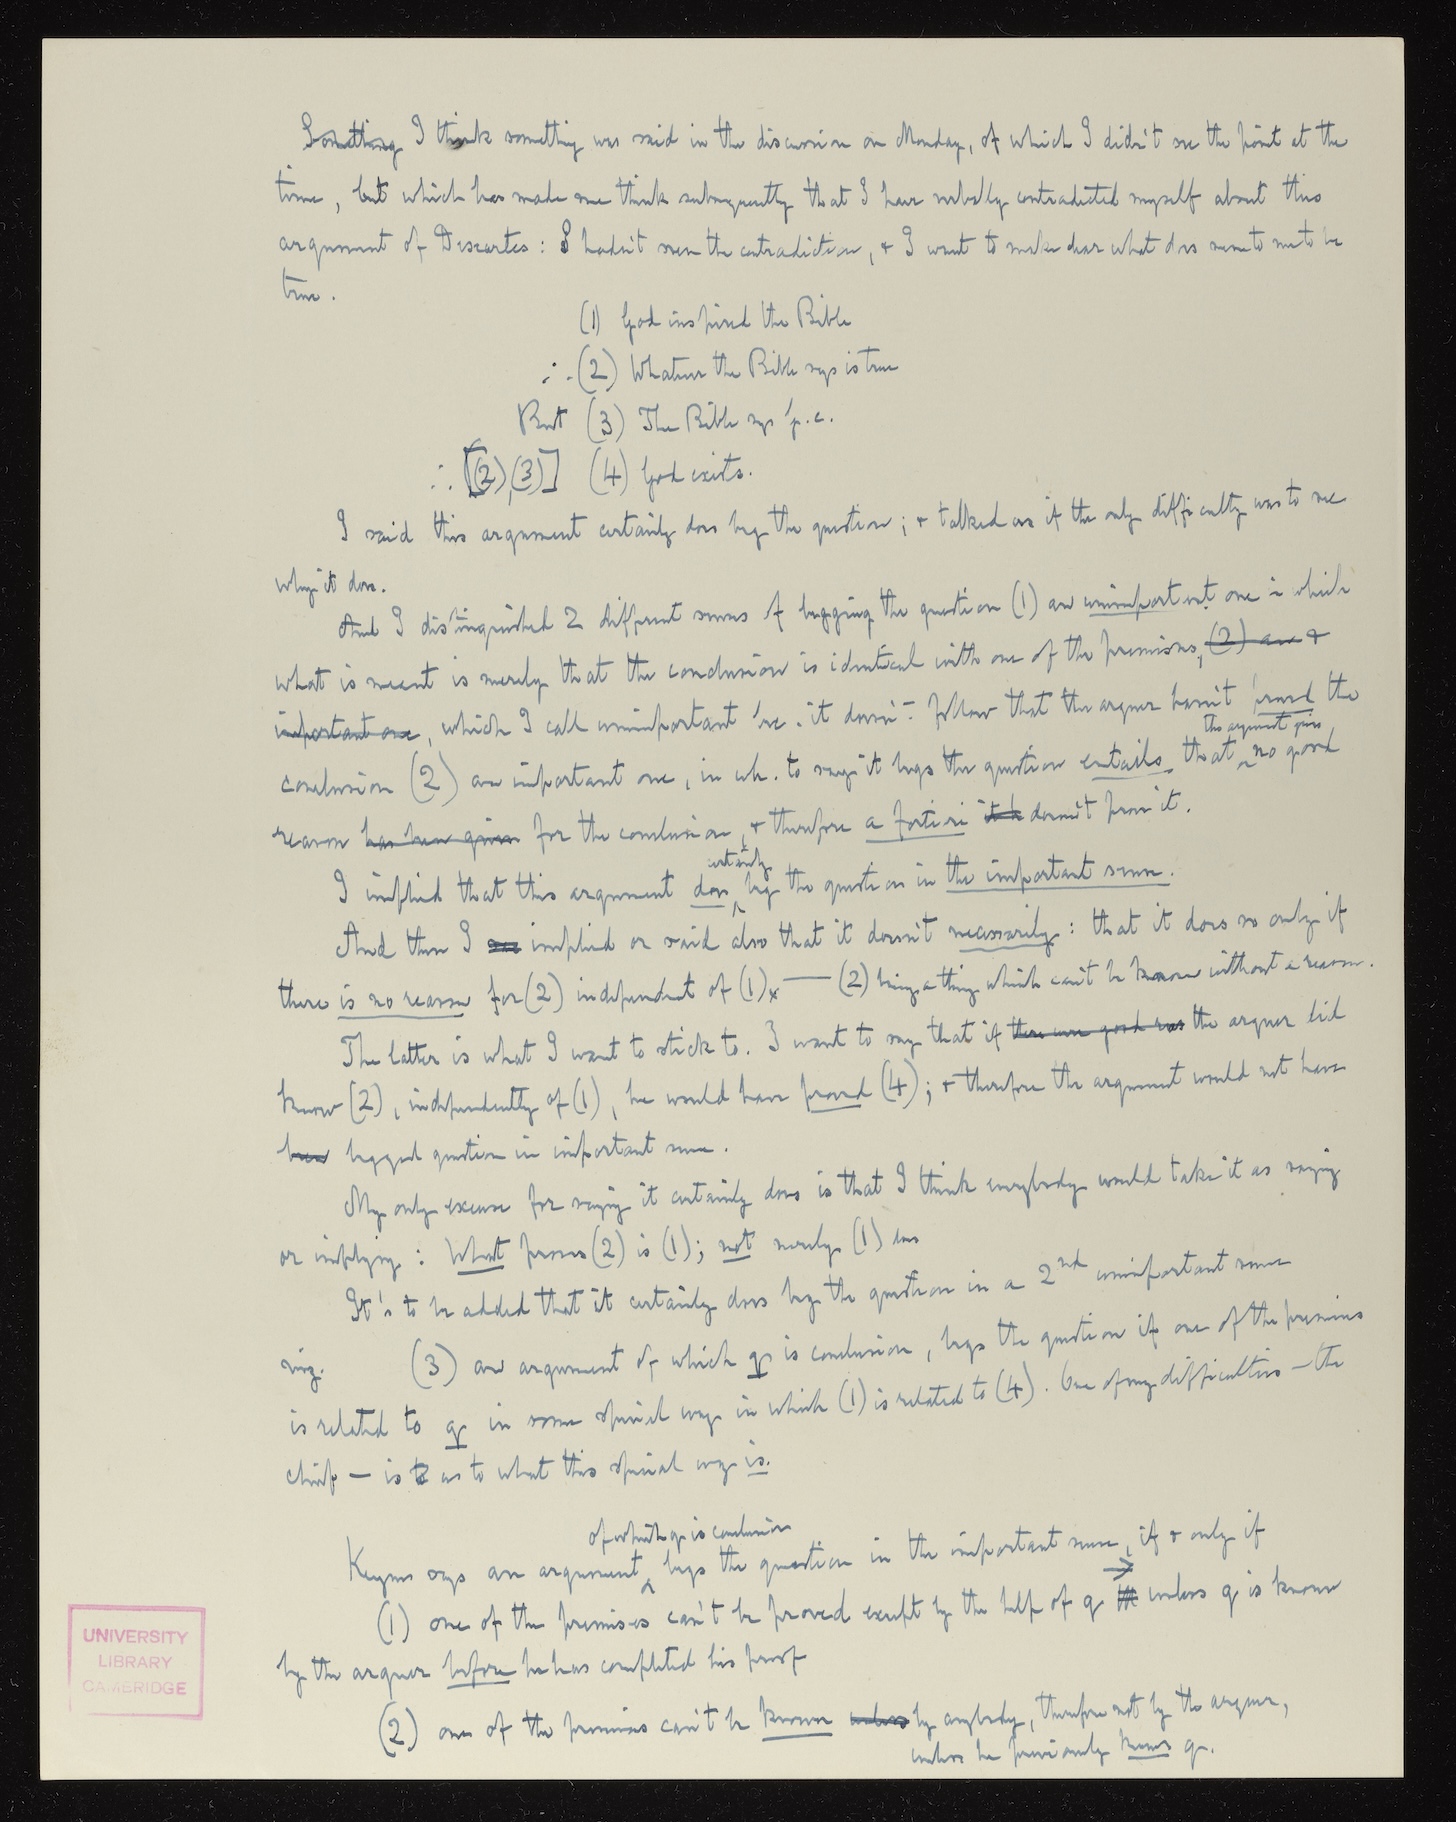 Something I think something was said in the discussion on Monday, of which I didn't see the point at the
time, but which has made me think subsequently that I have verbally contradicted myself about this
argument of Descartes: I hadn't seen the contradiction, & I want to make clear what does seem to me to be
true.
(1) God inspired the Bible
∴ (2) Whatever the Bible says is true
But (3) The Bible says
∴ [(2),(3)] (4) God exists.
I said this argument certainly does beg the question; & talked as if the only difficulty was to see
why it does.
And I distinguished 2 different senses of begging the question (1) an unimportant one in which
what is meant is merely that the conclusion is identical with one of the premises, (2) an &
important one, which I call unimportant 'cse. it doesn't follow that the arguer hasn't proved the
conclusion (2) an important one, in wh. to say it begs the question entails that this argument gives no good
reason has been given for the conclusion, & therefore a fortiori doesn't prove it.
I implied that this argument does certainly beg the question in the important sense.
And then I implied or said also that it doesn't necessarily: that it does so only if
there is no reason for (2) independent of (1) — (2) being a thing which can't be known without a reason.
The latter is what I want to stick to. I want to say that if there were good reas the arguer did
know (2), independently of (1), he would have proved (4); & therefore the argument would not have
been begged question in important sense.
My only excuse for saying it certainly does is that I think everybody would take it as saying
or implying: What proves (2) is (1); not merely (1) does
It's to be added that it certainly does beg the question in a 2nd unimportant sense
viz. (3) an argument of which q is conclusion, begs the question if one of the premises
is related to q in some special way in which (1) is related to (4). One of my difficulties – the
chief – is as to what this special way is.
Keynes says an argument of which q is conclusion begs the question in the important sense, if & only if
(1) one of the premises can't be proved except by the help of q → unless q is known
by the arguer before he has completed his proof
(2) one of the premises can't be known unless by anybody, therefore not by the arguer,
unless he previously knows q.
UNIVERSITY
LIBRARY
CAMBRIDGE